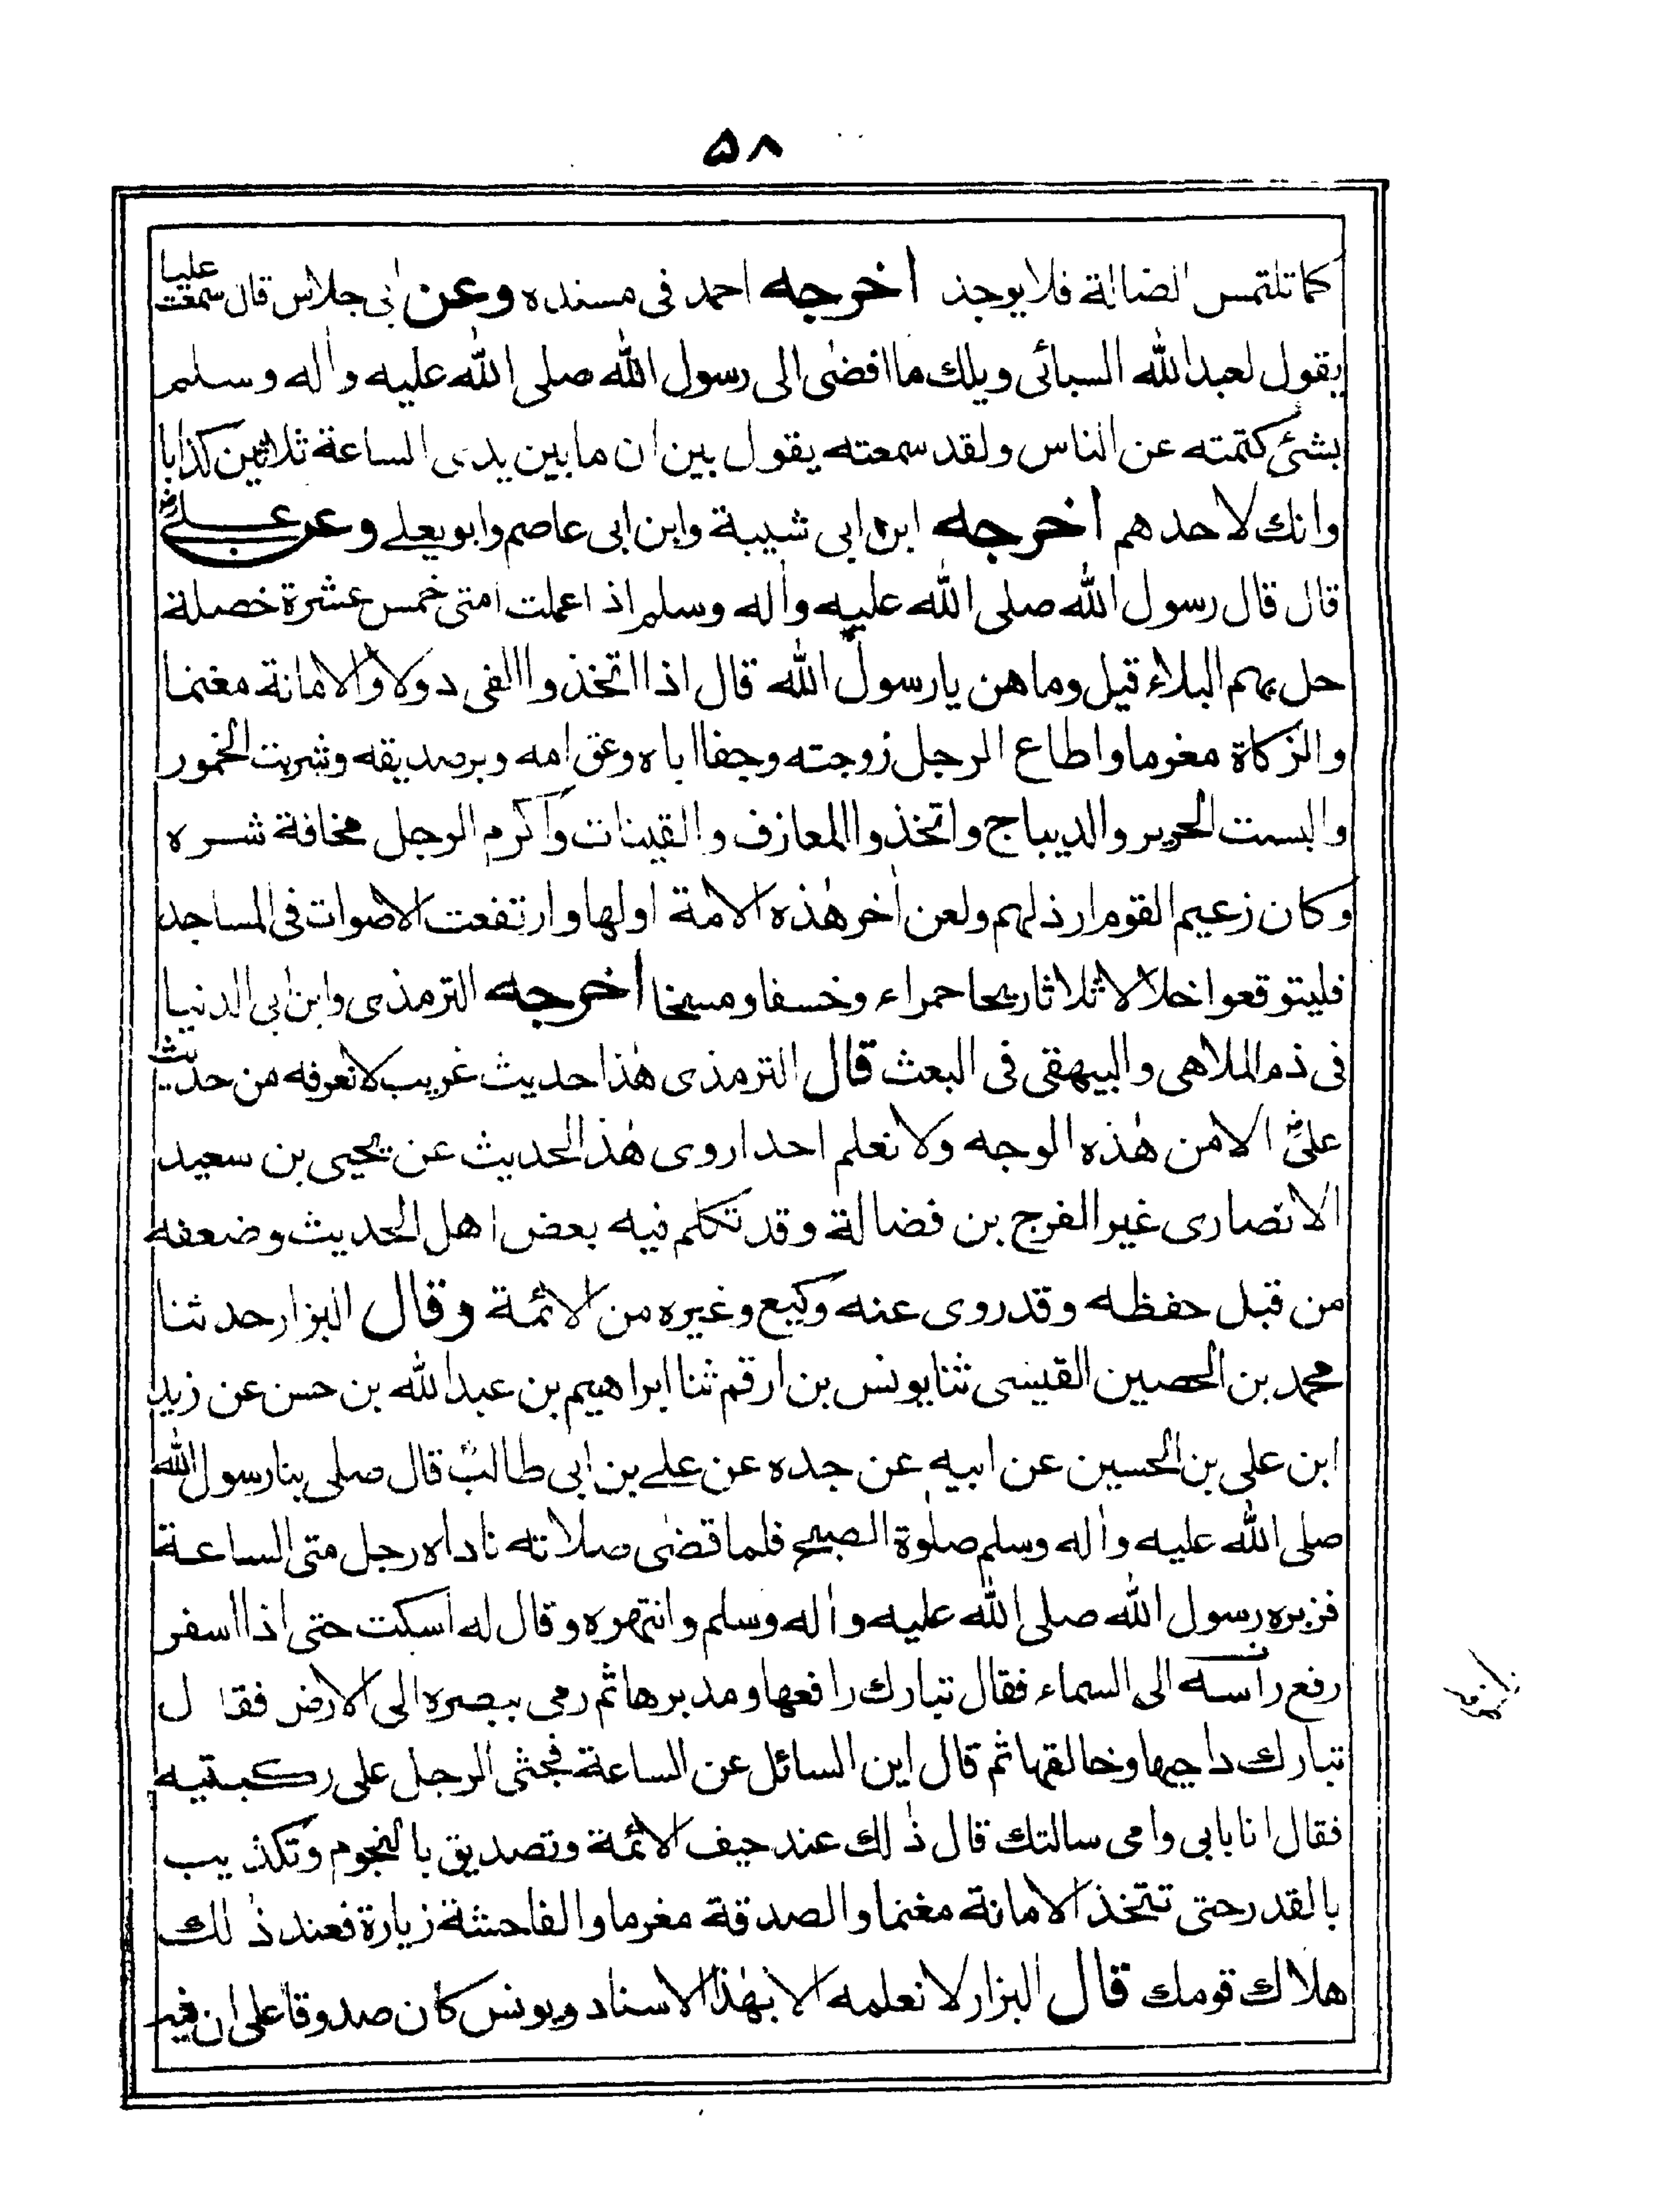 ۵۸
كما تلتمس الضالة فلا يوجد اخرجه احمد فى مسنده وعن ابى جلاس قال سمعت عليا
يقول لعبد الله السبائى ويلك ما افضى الى رسول الله صلى الله عليه واله وسلم
بشئ كتمته عن الناس ولقد سمعته يقول بين ان ما بين يدى الساعة ثلاثين كذابا
وانك لاحدهم اخرجه ابن ابى شيبة وابن ابى عاصم وابو يعلے وعن علےؓ
قال قال رسول الله صلى الله عليه واله وسلم اذ اعملت امتى خمس عشرة خصلة
حل بهم البلاء قيل وما هن يا رسول الله قال اذا اتخذوا الفى دولا والامانة مغنما
والزكاة مغرما واطاع الرجل زوجته وجفا اباه وعق امه وبر صديقه وشربت الخمور
والبست الحرير والديباج واتخذوا المعازف والقينات واكرم الرجل مخافة شره
وكان زعيم القوم ارذلهم ولعن اخر هذه الامة اولها وارتفعت الاصوات فى المساجد
فليتوقعوا خلالا ثلاثا ريحا حمراء وخسفا ومسخا اخرجه الترمذى وابن ابى الدنيا
فى ذم الملاهى والبيهقى فى البعث قال الترمذى هذا حديث غريب لا نعرفه من حديث
علىؓ الا من هذه الوجه ولا نعلم احدا روى هذ الحديث عن يحيى بن سعيد
الانصارى غير الفرج بن فضالة وقد تكلم فيه بعض اهل الحديث وضعفه
من قبل حفظه وقد روى عنه وكيع وغيره من الائمة وقال البزار حدثنا
محمد بن الحصين القيسى ثنا يونس بن ارقم ثنا ابراهيم بن عبد الله بن حسن عن زيد
ابن على بن الحسين عن ابيه عن جده عن علے بن ابى طالبؓ قال صلى بنا رسول الله
صلى الله عليه واله وسلم صلوة الصبح فلما قضى صلاته ناداه رجل متى الساعة
فزبره رسول الله صلى الله عليه واله وسلم وانتهره وقال له اسكت حتى اذا اسفر
رفع راسه الى السماء فقال تبارك رافعها ومدبرها ثم رمى ببصره الى الارض فقال
تبارك داجيها وخالقها ثم قال اين السائل عن الساعة فجثى الرجل على ركبتيه
فقال انا بابى وامى سالتك قال ذلك عند حيف الائمة وتصديق بالنجوم وتكذيب
بالقدر حتى تتخذ الامانة مغنما والصدقة مغرما والفاحشة زيارة فعند ذلك
هلاك قومك قال البزار لا نعلمه الا بهذا الاسناد ويونس كان صدوقا على ان فيه